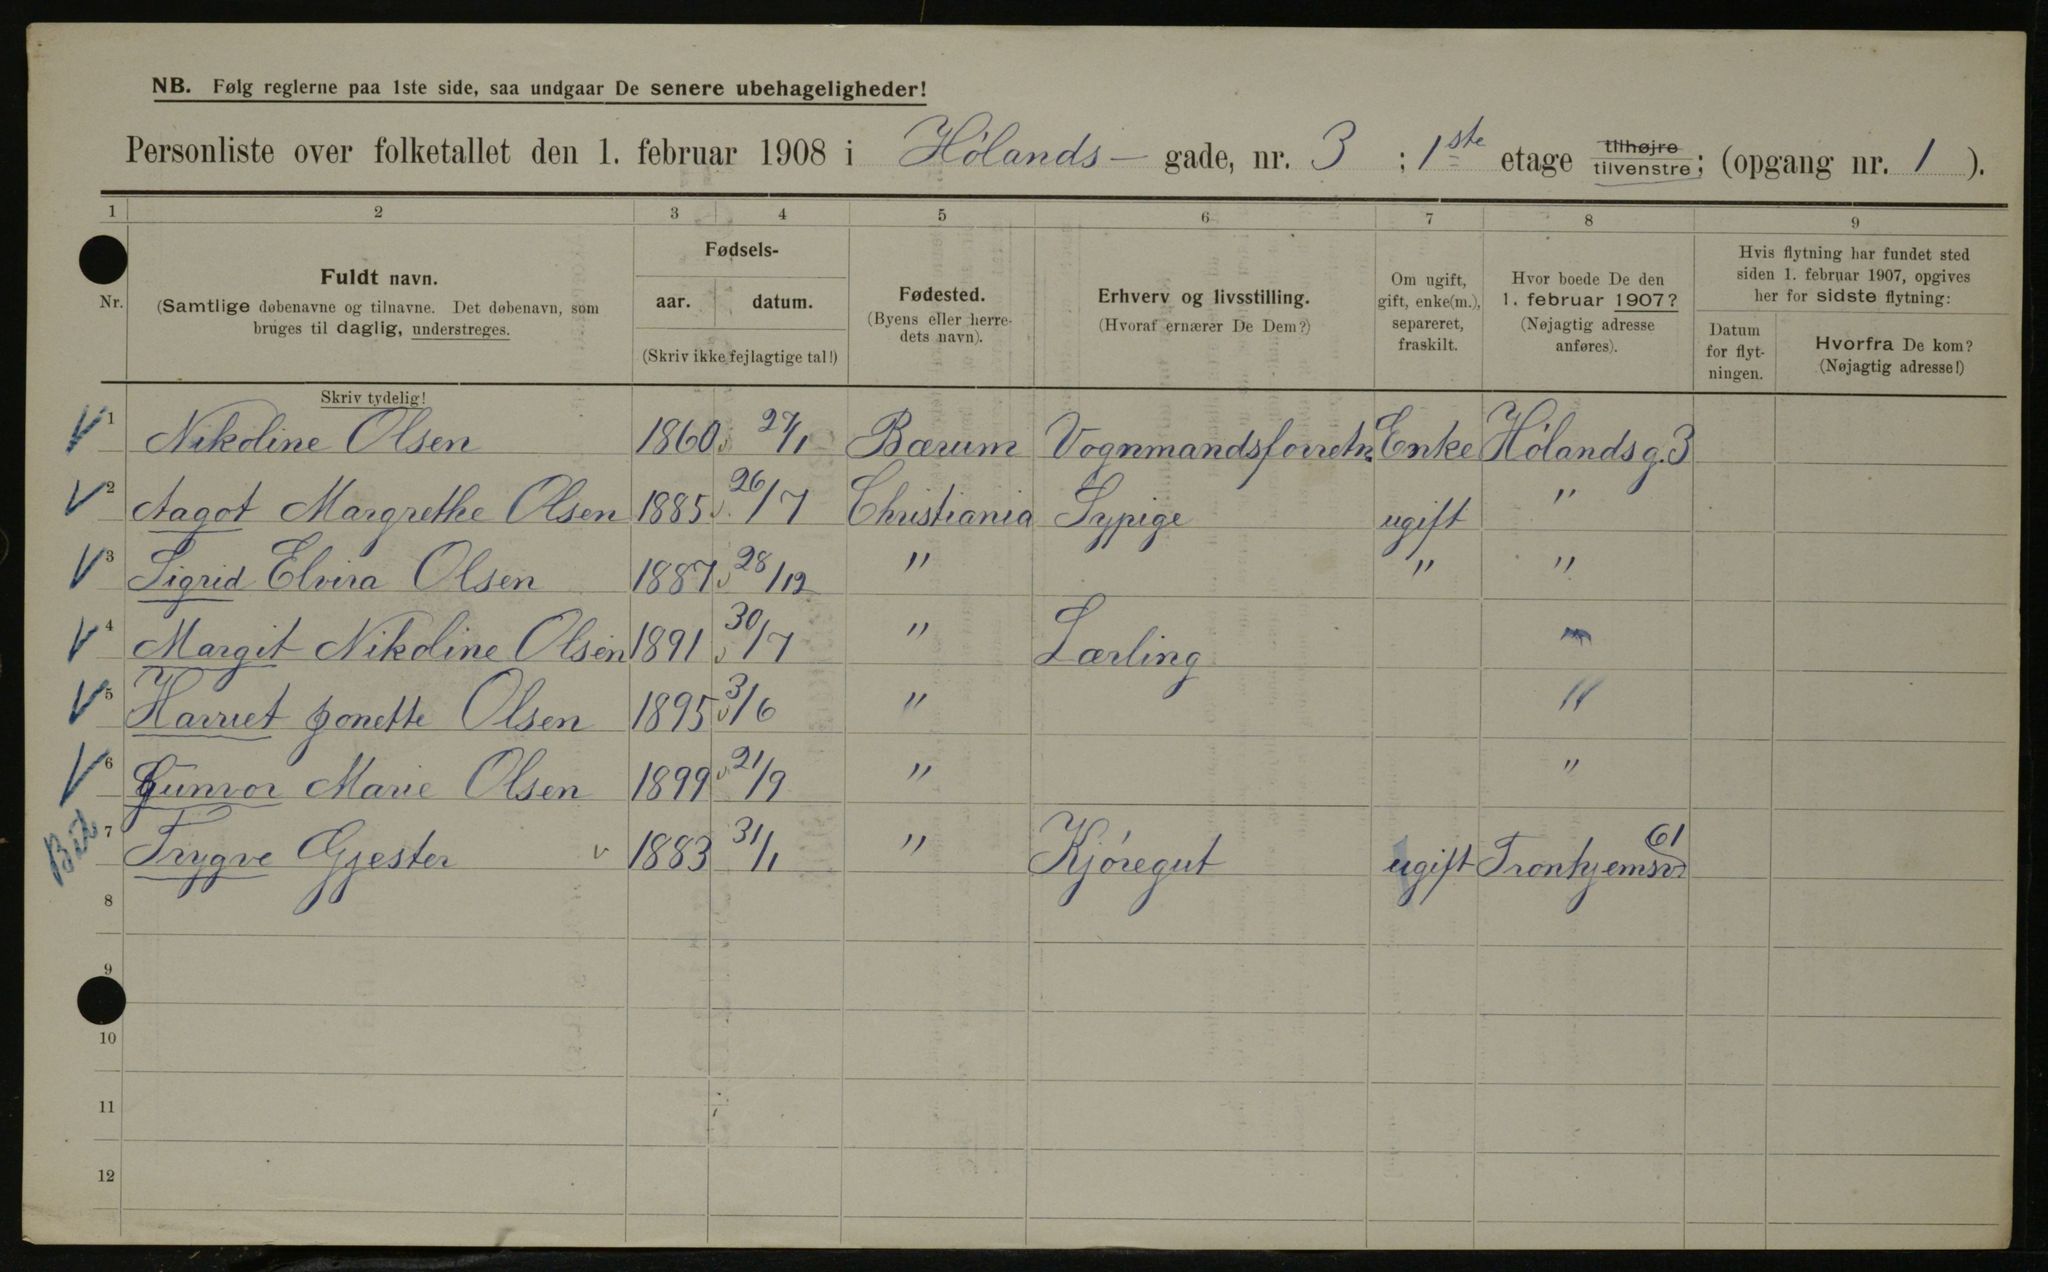 NB. Følg reglerne paa 1ste side, saa undgaar De senere ubehageligheder!
Personliste over folketallet den 1. februar 1908 i Hølands- gade, nr. 3 ; 1ste etage tilhøjre tilvenstre; (opgang nr. 1 ).
1 2 3 4 5 6 7 8 9
Nr.
Fuldt navn.
(Samtlige døbenavne og tilnavne. Det døbenavn, som
bruges til daglig, understreges.
Skriv tydelig!
Fødsels-
aar. datum.
(Skriv ikke fejlagtige tal!)
Fødested.
(Byens eller herre-
dets navn).
Erhverv og livsstilling.
(Hvoraf ernærer De Dem?)
Om ugift,
gift, enke(m.),
separeret,
fraskilt.
Hvor boede De den
1. februar 1907?
(Nøjagtig adresse
anføres).
Hvis flytning har fundet sted
siden 1. februar 1907, opgives
her for sidste flytning:
Datum
for flyt-
ningen.
Hvorfra De kom?
(Nøjagtig adresse!)
1 Nikoline Olsen 1860 27/1 Bærum Vognmandsforretn. Enke Hølandsg. 3
2 Aagot Margrethe Olsen 1885 26/7 Christiania Sypige ugift "
3 Sigrid Elvira Olsen 1887 28/12 " " "
4 Margit Nikoline Olsen 1891 30/7 " Lærling "
5 Harriet Jonette Olsen 1895 3/6 " "
6 Gunvor Marie Olsen 1899 21/9 " "
7 Trygve Gjester 1883 31/1 " Kjøregut ugift Tronhjemsv 61
8
9
10
11
12